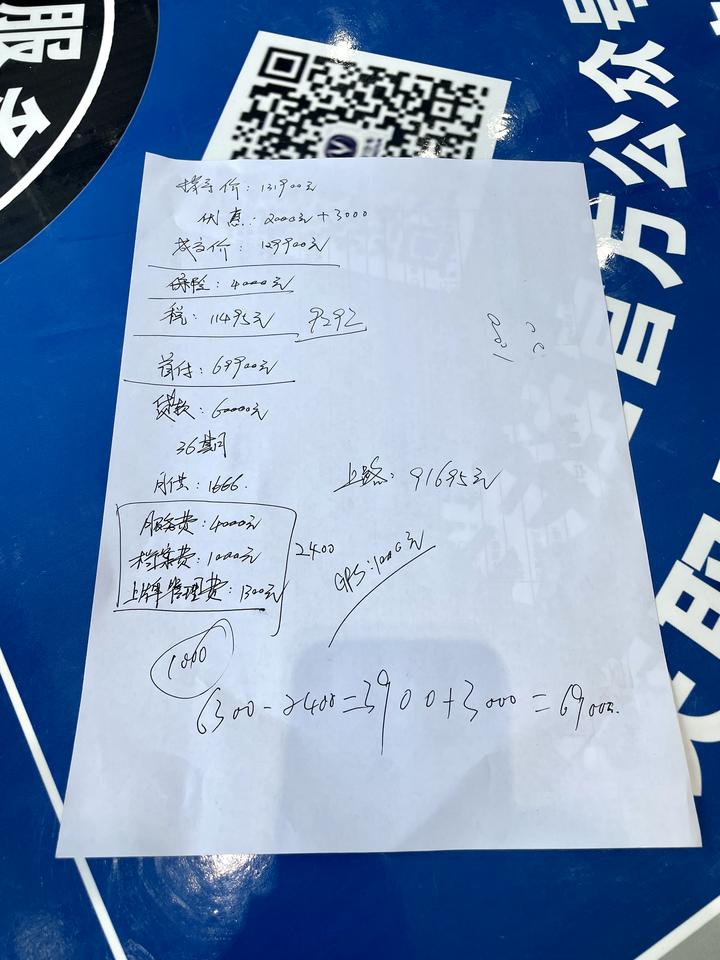 服
指导价：131900元
优惠：2000元+3000
成交价：129900元
保险：4000元
税：11495元 9292
首付：69900元
贷款：60000元
36期
月供：1666.
上路：91695元
服务费：4000元
档案费：1000元
上牌管理费：1300元
2400
GPS：1000元
1000
6300-2400=3900+3000=6900元.
官方公众号
服